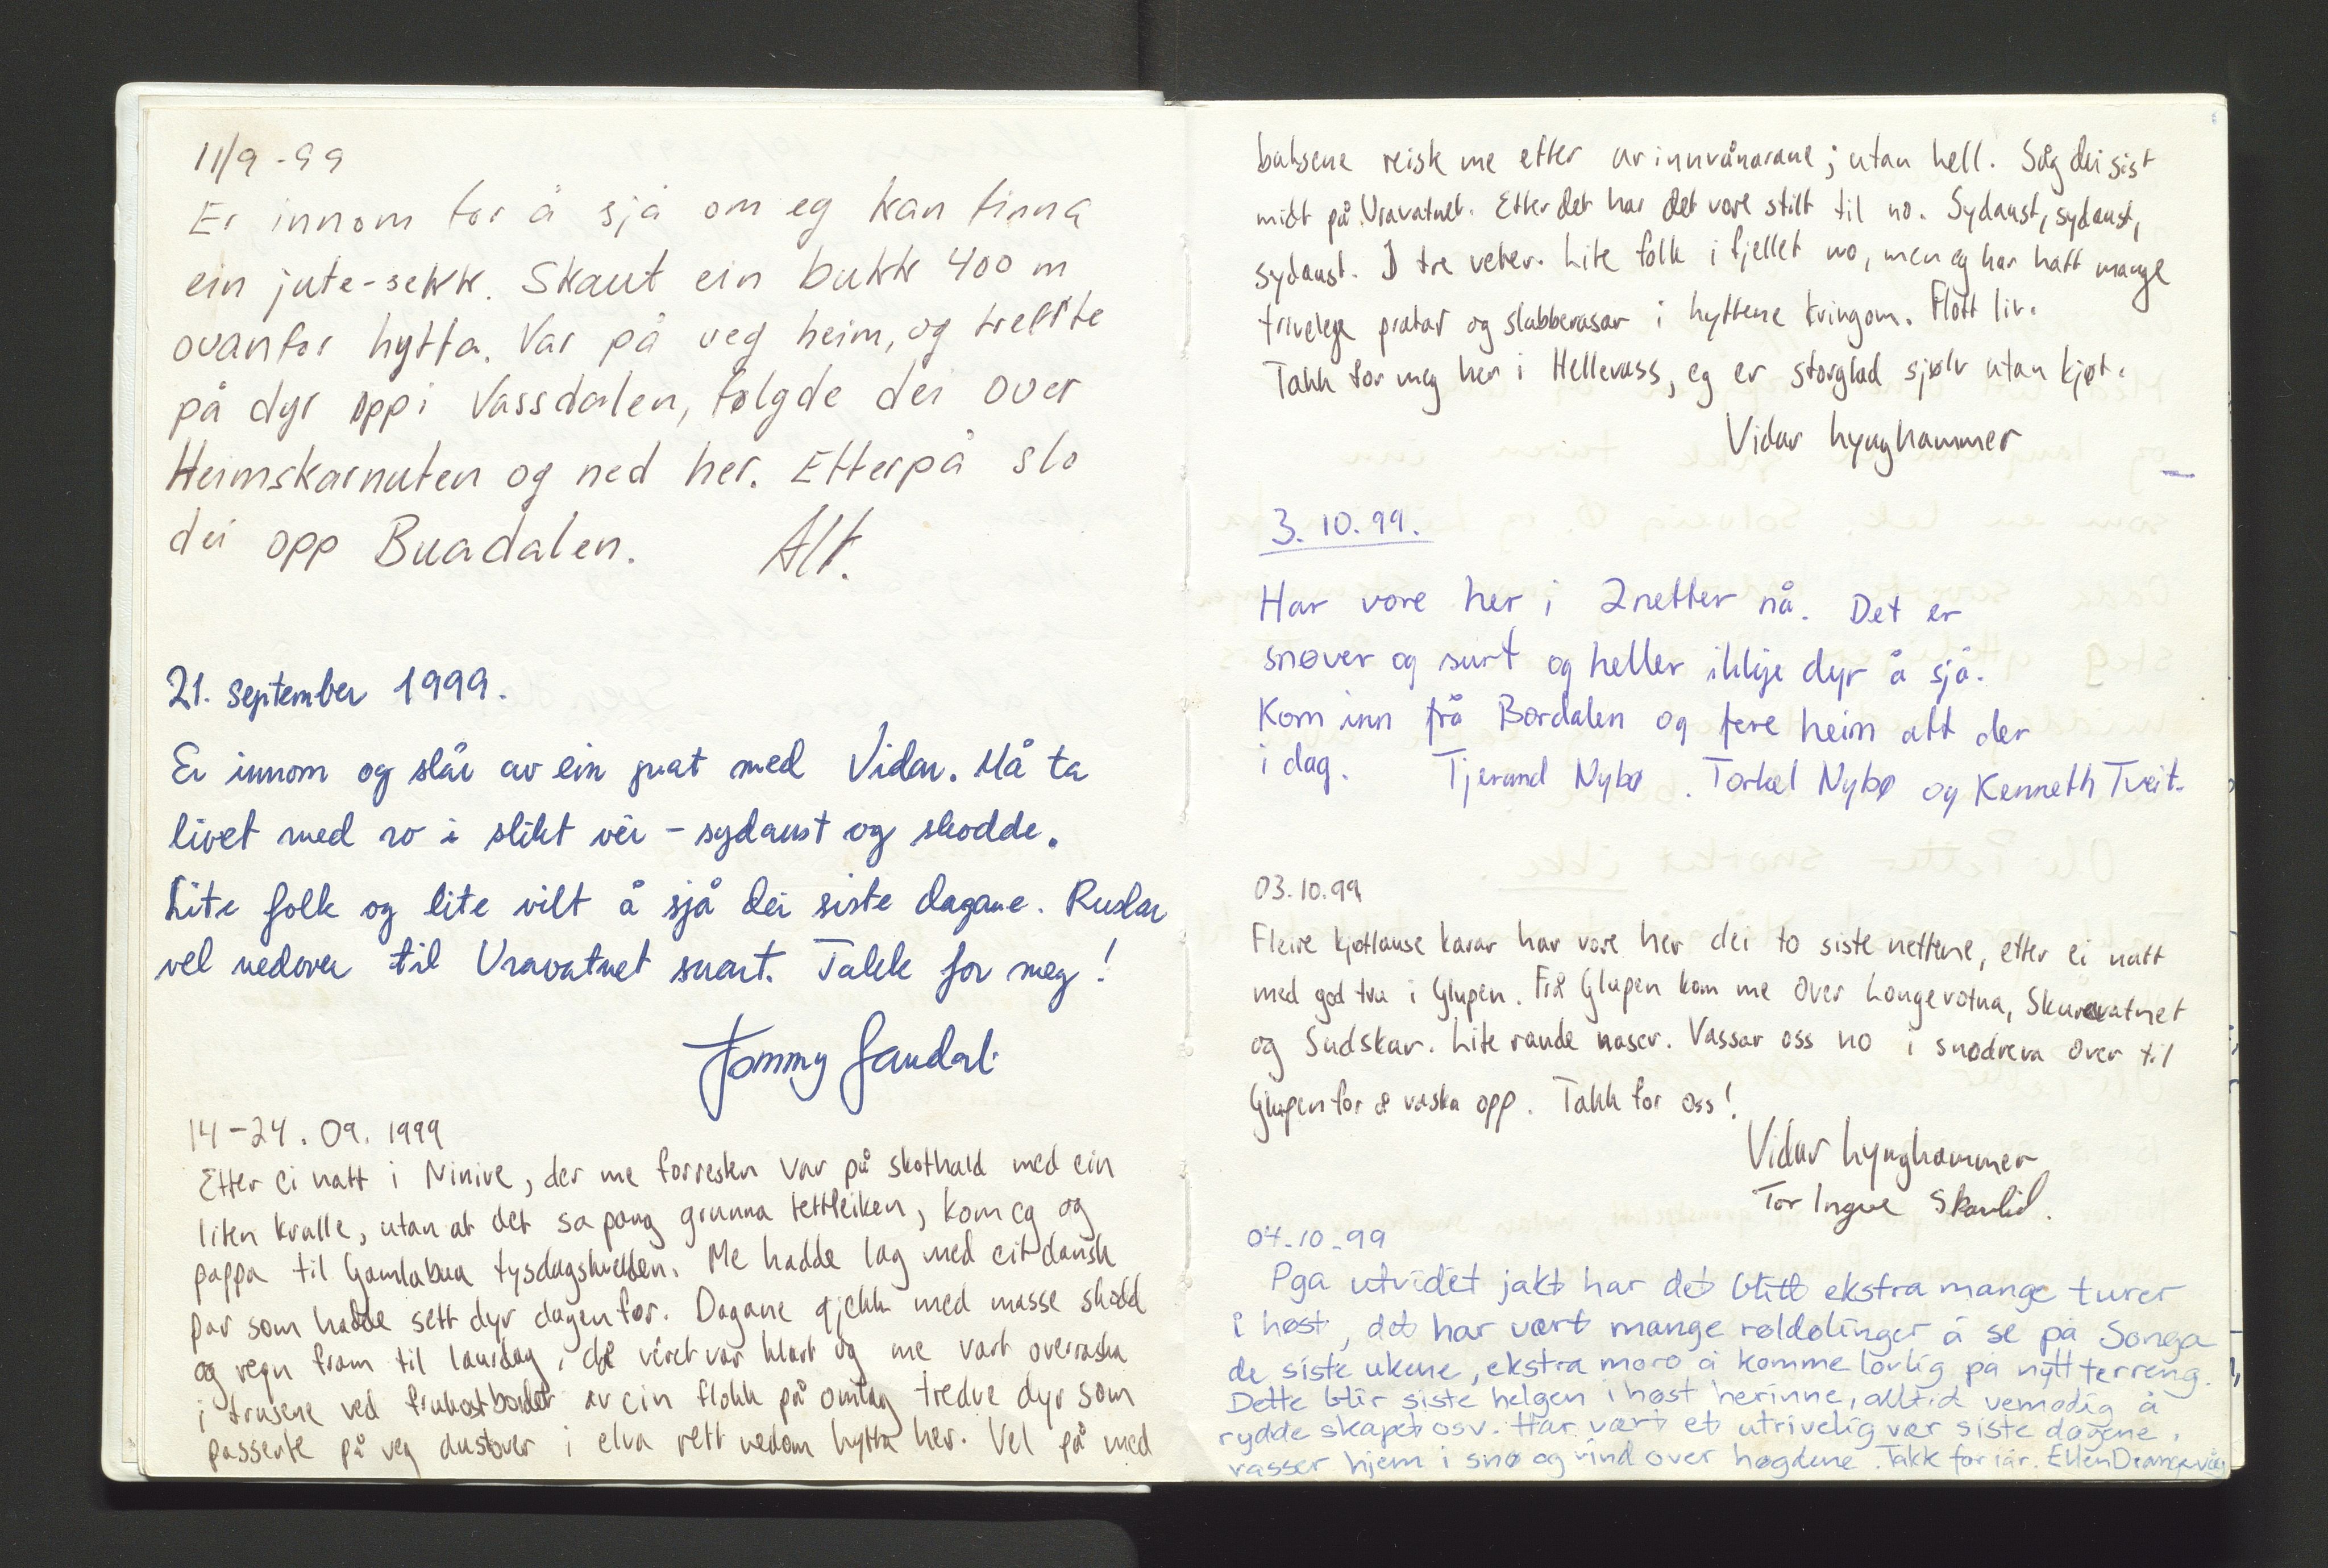 11/9-99
Er innom for å sjå om eg kan finna
ein jute-sekk. Skaut ein bukk 400 m
ovanfor hytta. Var på veg heim, og trefte
på dyr oppi Vassdalen, følgde dei over
Heimskarnuten og ned her. Etterpå slo
dei opp Buadalen. Alf.
21. september 1999.
Er innom og slår av ein prat med Vidar. Må ta
livet med ro i slikt vêr - sydaust og skodde.
Lite folk og lite vilt å sjå dei siste dagane. Ruslar
vel nedover til Vravatnet snart. Takk for meg!
Tommy
14-24.09.1999
Etter ei natt i Ninive, der me forresten var på skothald med ein
liten kvalle, utan at det sa pang grunna tettleiken, kom eg og
pappa til Gamlabua tysdagskvelden. Me hadde lag med eit dansk
par som hadde sett dyr dagen før. Dagane gjekk med masse skodd
og regn fram til laurdag, då vêret var klart og me vart overraska
i trusene ved frukostbordet av ein flokk på omlag tredve dyr som
passerte på veg austover i elva rett nedom hytta her. Vel på med
buksene reiste me etter urinnvånarane; utan hell. Såg dei sist
midt på Vravatnet. Etter det har det vore stilt til no. Sydaust, sydaust,
sydaust. I tre veker. Lite folk i fjellet no, men eg har hatt mange
trivelege pratar og slabberasar i hyttene kringom. Flott liv.
Takk for meg her i Hellevass, eg er storglad sjølv utan kjøt.
Vidar Lynghammer
3.10.99.
Har vore her i 2netter nå. Det er
snøver og surt og heller ikkje dyr å sjå.
Kom inn frå Bordalen og fere heim att der
i dag. Tjerand Nybø. Torkel Nybø og Kenneth Tveit.
03.10.99
Fleire kjøtlause karar har vore her dei to siste nettene, etter ei natt
med god tru i Glupen. Frå Glupen kom me over Longevotna, Skuravatnet
og Sudskar. Lite raude naser. Vassar oss no i snødreva over til
Glupen for å vaska opp. Takk for oss!
Vidar Lynghammer
Tor Ingve Skarlid.
04-10-99
Pga utvidet jakt har det blitt ekstra mange turer
i høst, det har vært mange røldølinger å se på Songa
de siste ukene, ekstra moro å komme lovlig på nytt terreng.
Dette blir siste helgen i høst herinne, alltid vemodig å
rydde skapet osv. Har vært et utrivelig vær siste dagene,
vasser hjem i snø og vind over høgdene. Takk for i år. Ellen